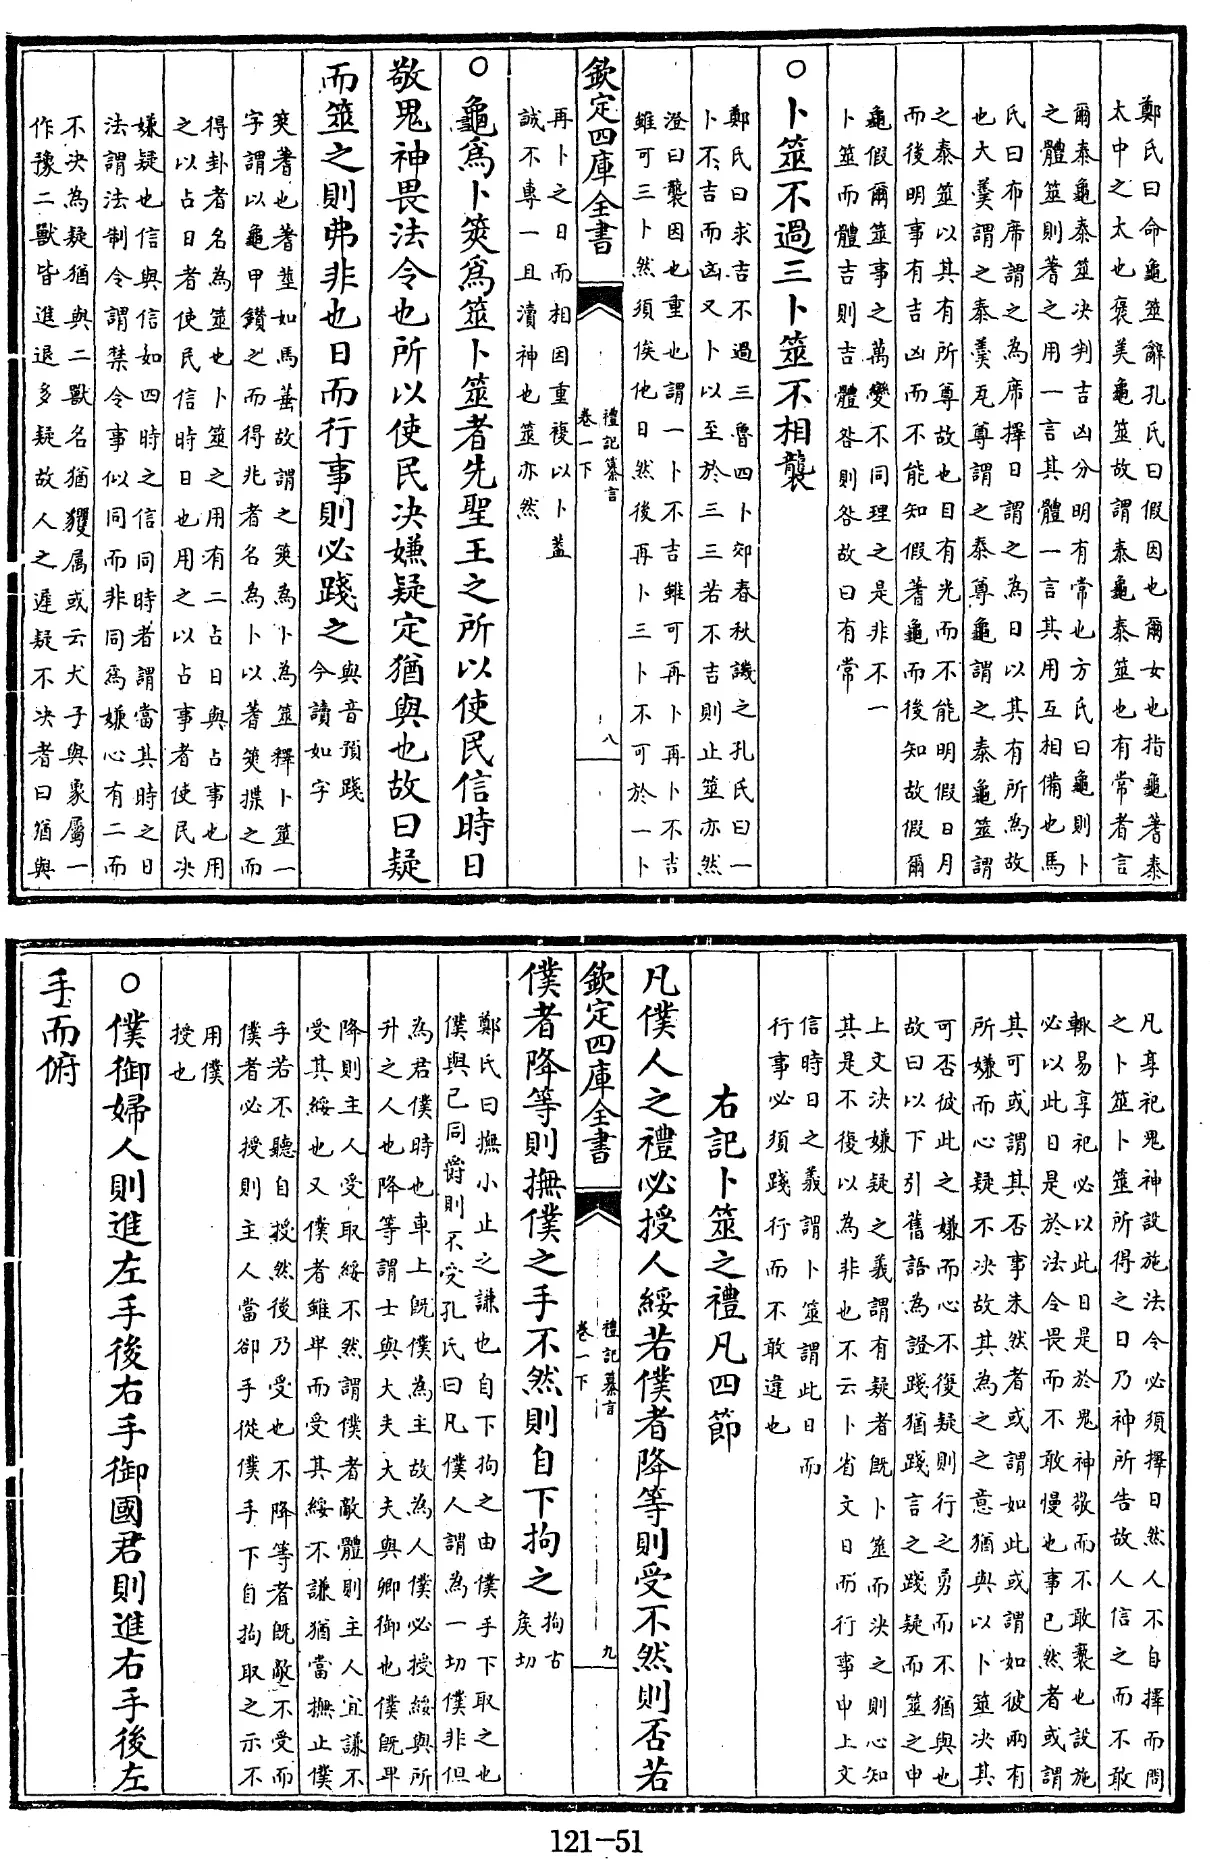 鄭氏曰命龜筮辭孔氏曰假因也爾女也指龜蓍泰
太中之太也褒美龜筮故謂泰龜泰筮也有常者言
爾泰龜泰筮决判吉凶分明有常也方氏曰龜則卜
之體筮則蓍之用一言其體一言其用互相備也馬
氏曰布席謂之為席擇日謂之為日以其有所為故
也大羹謂之泰羹瓦尊謂之泰尊龜謂之泰龜筮謂
之泰筮以其有所尊故也目有光而不能明假日月
而後明事有吉凶而不能知假蓍龜而後知故假爾
龜假爾筮事之萬變不同理之是非不一
卜筮而體吉則吉體咎則咎故曰有常
○卜筮不過三卜筮不相襲
鄭氏曰求吉不過三魯四卜郊春秋譏之孔氏曰一
卜不吉而凶又卜以至於三三若不吉則止筮亦然
澄曰襲因也重也謂一卜不吉雖可再卜再卜不吉
雖可三卜然須俟他日然後再卜三卜不可於一卜
欽定四庫全書
禮記纂言
卷一下
八
再卜之日而相因重複以卜蓋
誠不專一且瀆神也筮亦然
○龜爲卜筴爲筮卜筮者先聖王之所以使民信時日
敬鬼神畏法令也所以使民决嫌疑定猶與也故曰疑
而筮之則弗非也日而行事則必踐之
與音預踐
今讀如字
筴蓍也蓍莖如馬箠故謂之筴為卜為筮釋卜筮一
字謂以龜甲鑽之而得兆者名為卜以蓍筴揲之而
得卦者名為筮也卜筮之用有二占日與占事也用
之以占日者使民信時日也用之以占事者使民决
嫌疑也信與信如四時之信同時者謂當其時之日
法謂法制令謂禁令事似同而非同爲嫌心有二而
不决為疑猶與二獸名猶玃属或云犬子與象屬一
作豫二獸皆進退多疑故人之遲疑不决者曰猶與
凡享祀鬼神設施法令必須擇日然人不自擇而問
之卜筮卜筮所得之日乃神所告故人信之而不敢
輙易享祀必以此日是於鬼神敬而不敢褻也設施
必以此日是於法令畏而不敢慢也事已然者或謂
其可或謂其否事未然者或謂如此或謂如彼兩有
所嫌而心疑不决故其為之之意猶與以卜筮决其
可否彼此之嫌而心不復疑則行之勇而不猶與也
故曰以下引舊語為證踐猶踐言之踐疑而筮之申
上文決嫌疑之義謂有疑者既卜筮而決之則心知
其是不後以為非也不云卜省文日而行事申上文
信時日之義謂卜筮謂此日而
行事必須踐行而不敢違也
右記卜筮之禮凡四節
凡僕人之禮必授人綏若僕者降等則受不然則否若
欽定四庫全書
禮記纂言
卷一下
九
僕者降等則撫僕之手不然則自下拘之
拘古
矦切
鄭氏曰撫小止之謙也自下拘之由僕手下取之也
僕與己同爵則不受孔氏曰凡僕人謂為一切僕非但
為君僕時也車上既僕為主故為人僕必授綏與所
升之人也降等謂士與大夫大夫與卿御也僕既卑
降則主人受取綏不然謂僕者敵體則主人宜謙不
受其綏也又僕者雖卑而受其綏不謙猶當撫止僕
手若不聽自授然後乃受也不降等者既敵不受而
僕者必授則主人當郤手從僕手下自拘取之示不
用僕
授也
○僕御婦人則進左手後右手御國君則進右手後左
手而俯
121—51